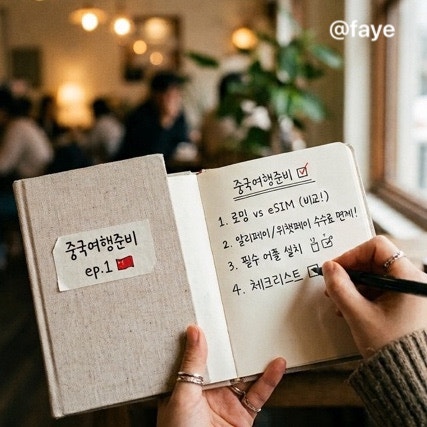 @faye
중국여행준비
ep.1 🇨🇳
중국여행준비 ☑
1. 로밍 vs eSIM (비교!)
2. 알리페이/위챗페이 수수료 면제!
3. 필수 어플 설치
4. 체크리스트 ☑